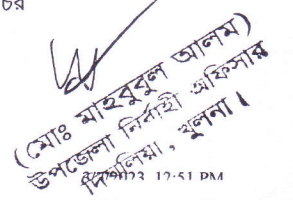 চর
(মোঃ মাহবুবুল আলম)
উপজেলা নির্বাহী অফিসার
দিঘলিয়া, খুলনা।
8/7/2023 12:51 PM